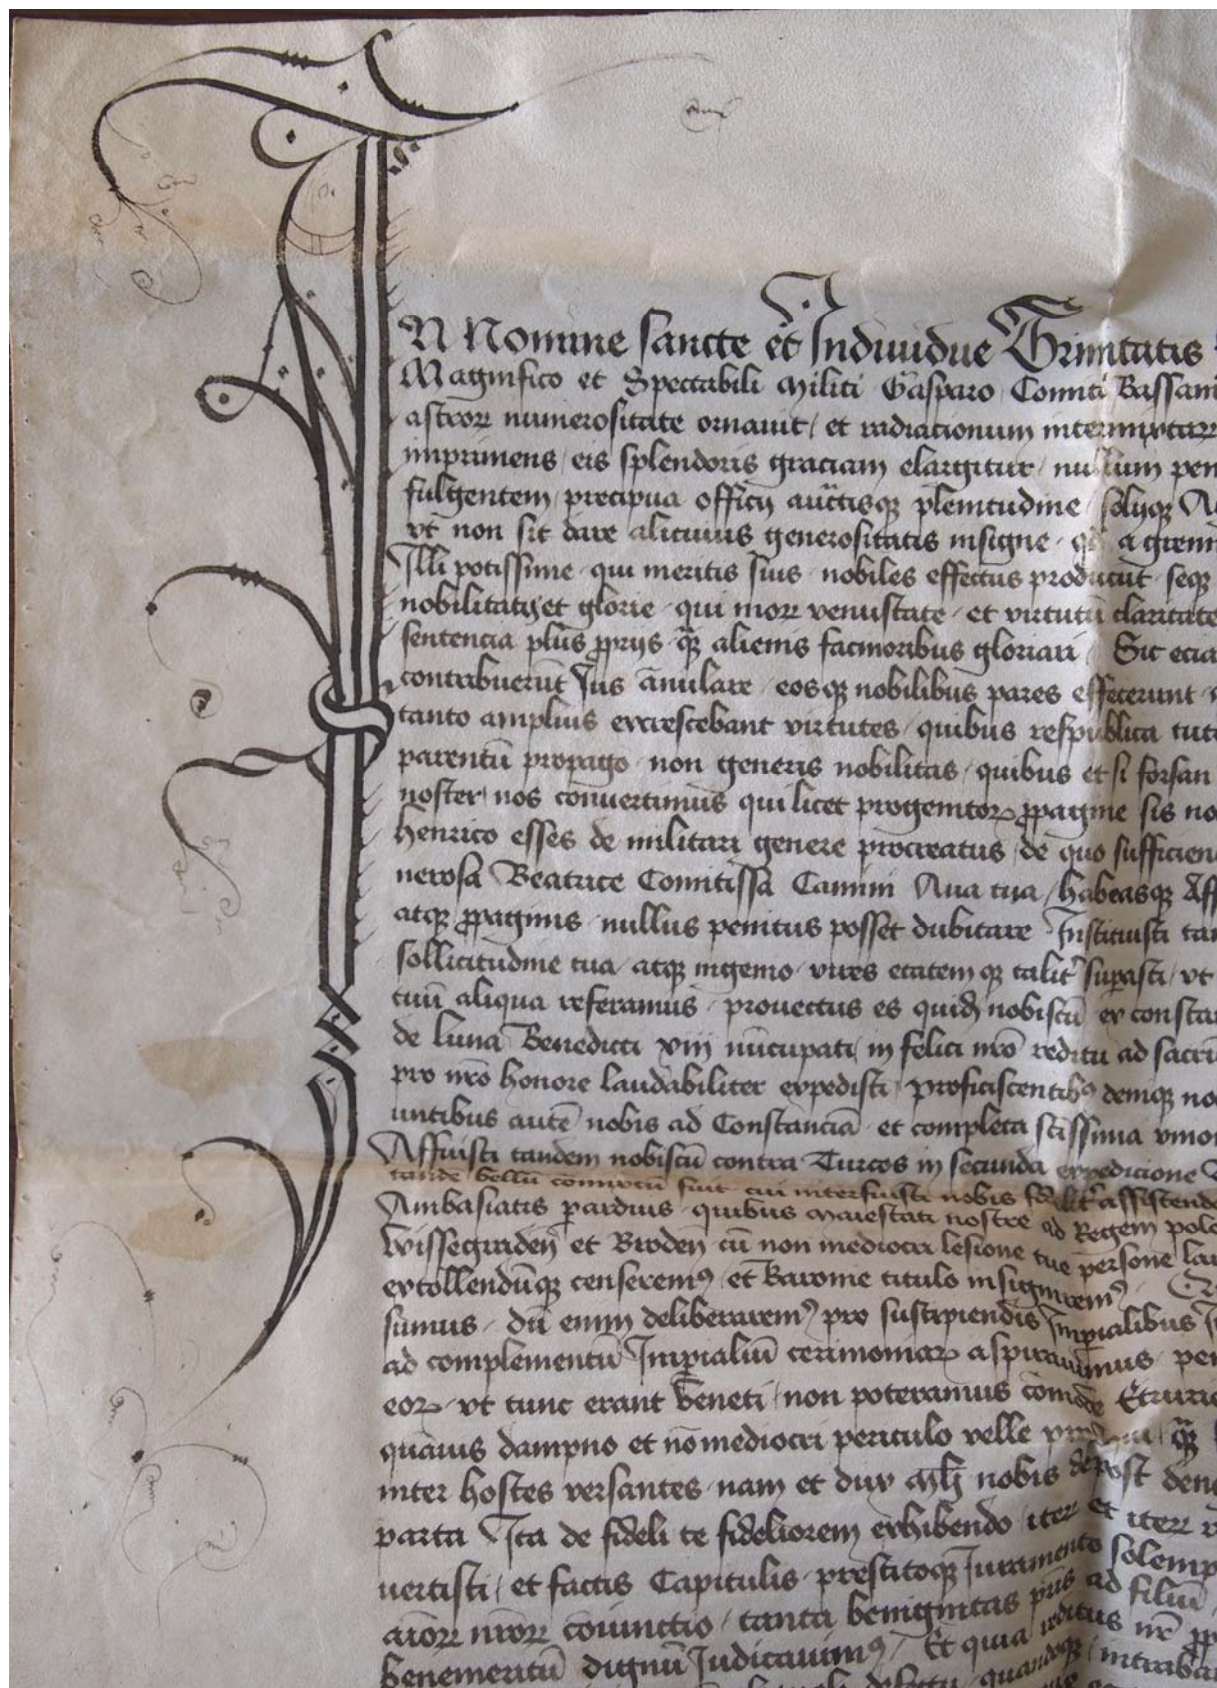 IN Nomine sancte et Indiuidue Trinitatis
Magnifico et Spectabili Militi Gasparo Comiti Bassani
astrorꝝ numerositate ornauit / et radiacionum
imprimens / eis splendoris graciam elargitur / nullum pen
fulgentem / precipua officij plenitudine / solijqꝫ
vt non sit dare alicuius generositatis insigne · a gremi
Illi potissime · qui meritis suis · nobiles effectus producūt · seqꝫ
nobilitatis et glorie · qui morꝝ venustate · et virtutū claritate
sentencia plus ꝓprijs · qͣꝫ alienis facinoribus gloriari / Sic ecia
contribuerūt Jus anulare · eosqꝫ nobilibus pares effecerunt ·
tanto amplius excrescebant virtutes · quibus respublica tut
parentū propago · non generis nobilitas / quibus et si forsan
noster nos conuertimus qui licet progenitorꝝ ꝓpagine sis no
Henrico esses de militari genere procreatus / de quo sufficien
nerosa Beatrice Comitissa Camini Aua tua / habeasqꝫ Aff
atqꝫ ꝓpaginis · nullus penitus posset dubitare Instituisti ta
sollicitudine tua / atqꝫ ingenio · vires etatemqꝫ taliṫ suꝑasti / vt
tuū aliqua referamus · prouectus es quidē nobiscū ex consta
de luna Benedicti xiij nūcupati / in felici nr̄o reditu ad sacrū
pro nr̄o honore laudabiliter expedisti / proficiscentibꝰ demiqꝫ no
untibus autē nobis ad Constanciā · et completa scīssima vnion
Affuisti tandem nobiscū contra Turcos in secunda expedicione
tandē bellū comissū fuit cui interfuisti nobis fideliṫ assistendo
Ambasiatis ꝑarduis · quibus Maiestati nostre ad Regem polo
wissegraden̄ et Broden̄ cū non mediocri lesione tue persone lau
extollendūqꝫ censeremꝰ · et Baronie titulo insigniremꝰ ·
sumus · dū enim deliberaremꝰ pro suscipiendis Imꝑialibus
ad complementū Imꝑialiū cerimoniarꝝ aspirauimus · per
eorꝝ · vt tunc erant Veneti / non poteramus comode Etrurie
quāuis dampno et nō mediocri periculo velle qͣꝫ
inter hostes versantes · nam et dux Mlī nobis post dene
parta Ita de fideli te fideliorem exhibendo / iter et iterꝝ
uertisti / et factis Capitulis · prestitoqꝫ Juramento solemp
aīorꝝ nr̄orꝝ coniunctio / tanta benignitas pr̄is ad filiū
benemeritū dignū Judicauimꝰ / Et quia reditus nr̄
defectu · quandoqꝫ / intraba